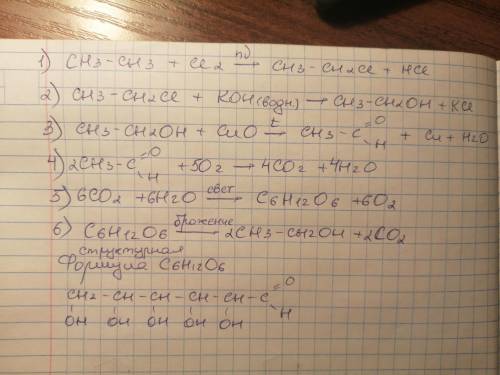 hν
1) CH3-CH3 + Cl2 → CH3-CH2Cl + HCl
2) CH3-CH2Cl + KOH(водн) → CH3-CH2OH + KCl
3) CH3-CH2OH + CuO t→ CH3-C=O H + Cu + H2O
4) 2CH3-C=O H + 5O2 → 4CO2 + 4H2O
5) 6CO2 + 6H2O свет→ C6H12O6 + 6O2
6) C6H12O6 брожение→ 2CH3-CH2OH + 2CO2
структурная
формула C6H12O6
CH2-CH-CH-CH-CH-C=O H
OH OH OH OH OH